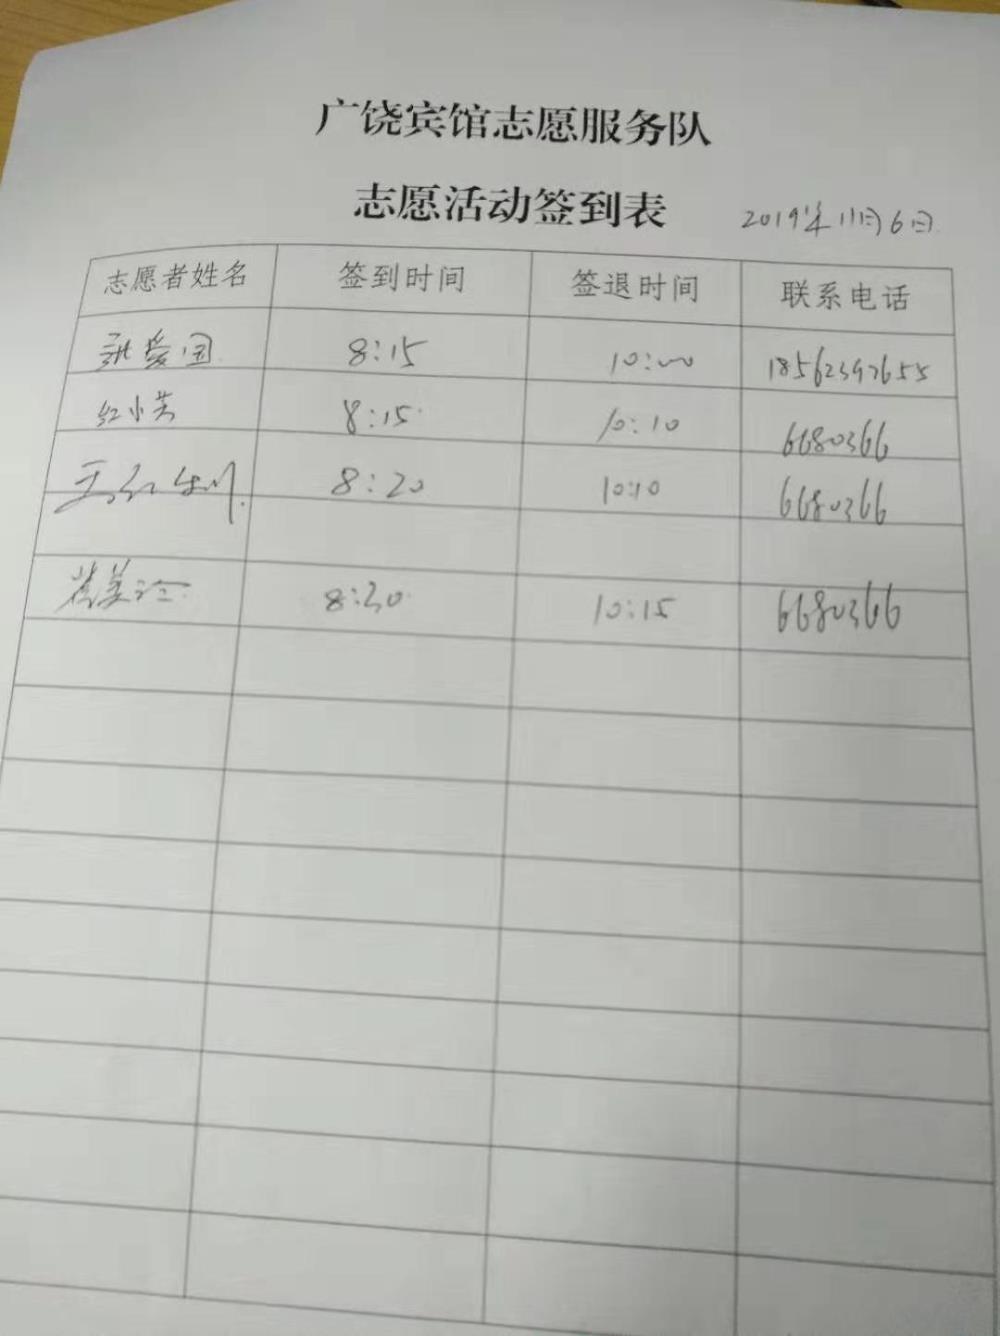 广饶宾馆志愿服务队
志愿活动签到表 2019年11月6日
志愿者姓名 签到时间 签退时间 联系电话
爱国 8:15 10:00 18562397655
红小芳 8:15 10:10 6680366
8:20 10:10 6680366
8:30 10:15 6680366